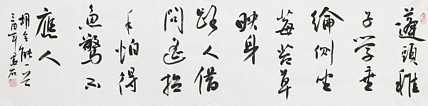 蓬頭稚
子學垂
綸側坐
莓苔草
映身
路人借
問遙招
手怕得
魚驚不
應人
胡令能